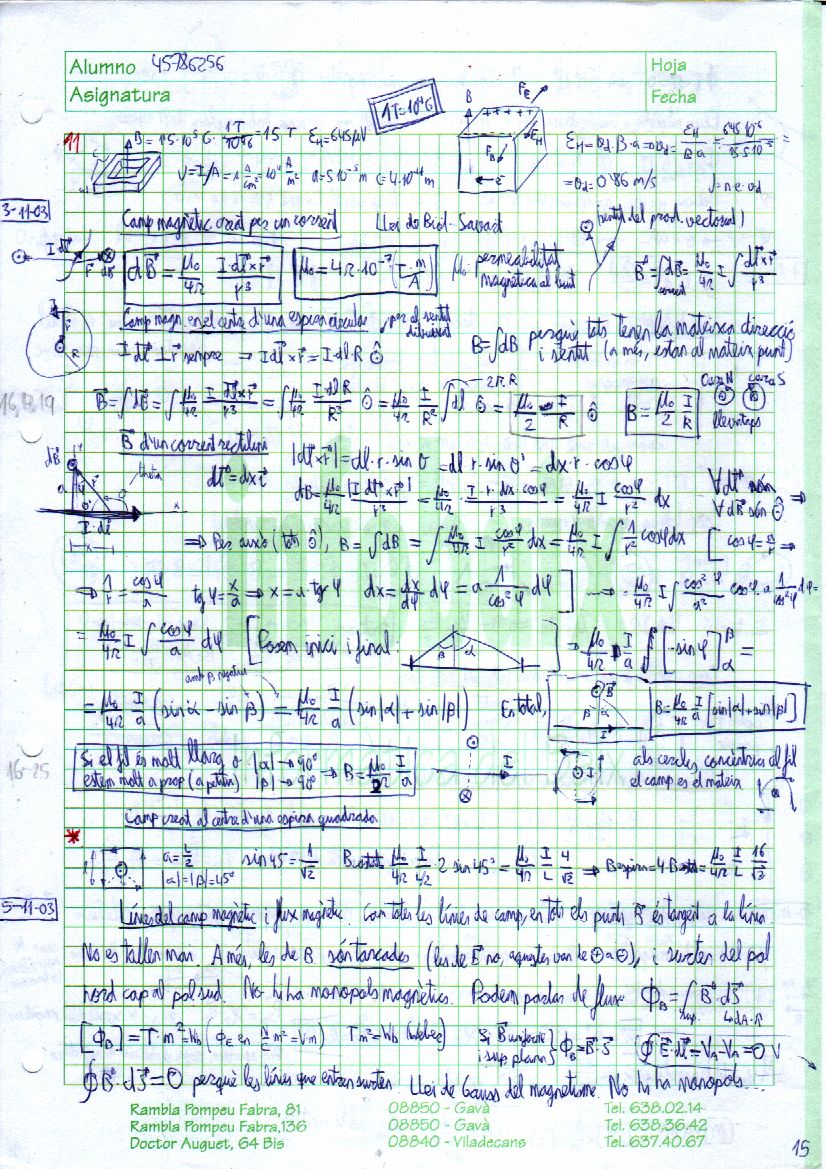 Alumno 45786256 Hoja
Asignatura Fecha
1T=10⁴G
11 B = 1'5·10⁵ G · 1T/10⁴G = 15 T
J=I/A
=> v_d = 0'86 m/s J=n·e·v_d
3-11-03
Camp magnètic creat per un corrent Llei de Biot-Savart (sentit del prod. vectorial)
dB = μ₀/4π I·dl×r/r³ μ₀=4π·10⁻⁷ (T·m/A) μ₀: permeabilitat magnètica al buit B=∫dB=μ₀/4π I ∫ dl×r/r³
Camp magn. en el centre d'una espira circular
I dl ⊥ r sempre → I dl×r = I·dl·R B=∫dB perquè tots tenen la mateixa direcció
i sentit (a més, estan al mateix punt)
16,17,19
B=∫dB=∫ μ₀/4π I·dl×r/r³ = ∫ μ₀/4π I·dl·R/R³ = μ₀/4π I/R² ∫dl = μ₀/2 I/R B= μ₀/2 I/R cara N cara S
B d'un corrent rectilini
|dl×r|=dl·r·sin θ = dl·r·sin θ' = dx·r·cosφ
dl=dx i
dB=μ₀/4π |I dl×r|/r³ = μ₀/4π · I·r·dx·cosφ/r³ = μ₀/4π I cosφ/r² dx
⇒ Per això (tots ⊙), B=∫dB = ∫ μ₀/4π I cosφ/r² dx = μ₀/4π I ∫ 1/r² cosφ dx [cosφ=a/r ⇒
⇒ 1/r = cosφ/a tgφ=x/a ⇒ x=a·tgφ dx=dx/dφ dφ = a 1/cos²φ dφ] → = μ₀/4π I ∫ cos²φ/a² cosφ·a 1/cos²φ dφ=
= μ₀/4π I ∫ cosφ/a dφ [Posem inici i final: ⇒ μ₀/4π I/a [-sinφ] =
amb β negatiu
= μ₀/4π I/a (sin α - sin β) = μ₀/4π I/a (sin|α|+sin|β|) En total, B= μ₀/4π I/a [sin|α|+sin|β|]
16-25
Si el fil és molt llarg, o |α|→90°
estem molt a prop (a petita) |β|→90° ⇒ B= μ₀/2π I/a
als cercles concèntrics al fil
el camp es el mateix
Camp creat al centre d'una espira quadrada
a=L/2 |α|=|β|=45° sin45=1/√2 B costat = μ₀/4π I/L/2 · 2 sin45° = μ₀/4π I/L 4/√2 ⇒ B espira=4·B costat= μ₀/4π I/L 16/√2
5-11-03
Línies del camp magnètic i flux magnètic. Com totes les línies de camp, en tots els punts B és tangent a la línia.
No es tallen mai. A més, les de B són tancades (les de E no, aquestes van de ⊕ a ⊖), i surten del pol
nord cap al pol sud. No hi ha monopols magnètics. Podem parlar de flux: Φ_B=∫sup B·dS
[Φ_B]=T·m²=Wb (Φ_E en N/C m²=V·m) Tm²=Wb (Weber) Si B uniforme i sup plana } Φ_B=B·S
∮B·dS=0 perquè les línies que entren surten. Llei de Gauss del magnetisme. No hi ha monopols...
Rambla Pompeu Fabra, 81 08850 - Gavà Tel. 638.02.14
Rambla Pompeu Fabra,136 08850 - Gavà Tel. 638.36.42
Doctor Auguet, 64 Bis 08840 - Viladecans Tel. 637.40.67
15